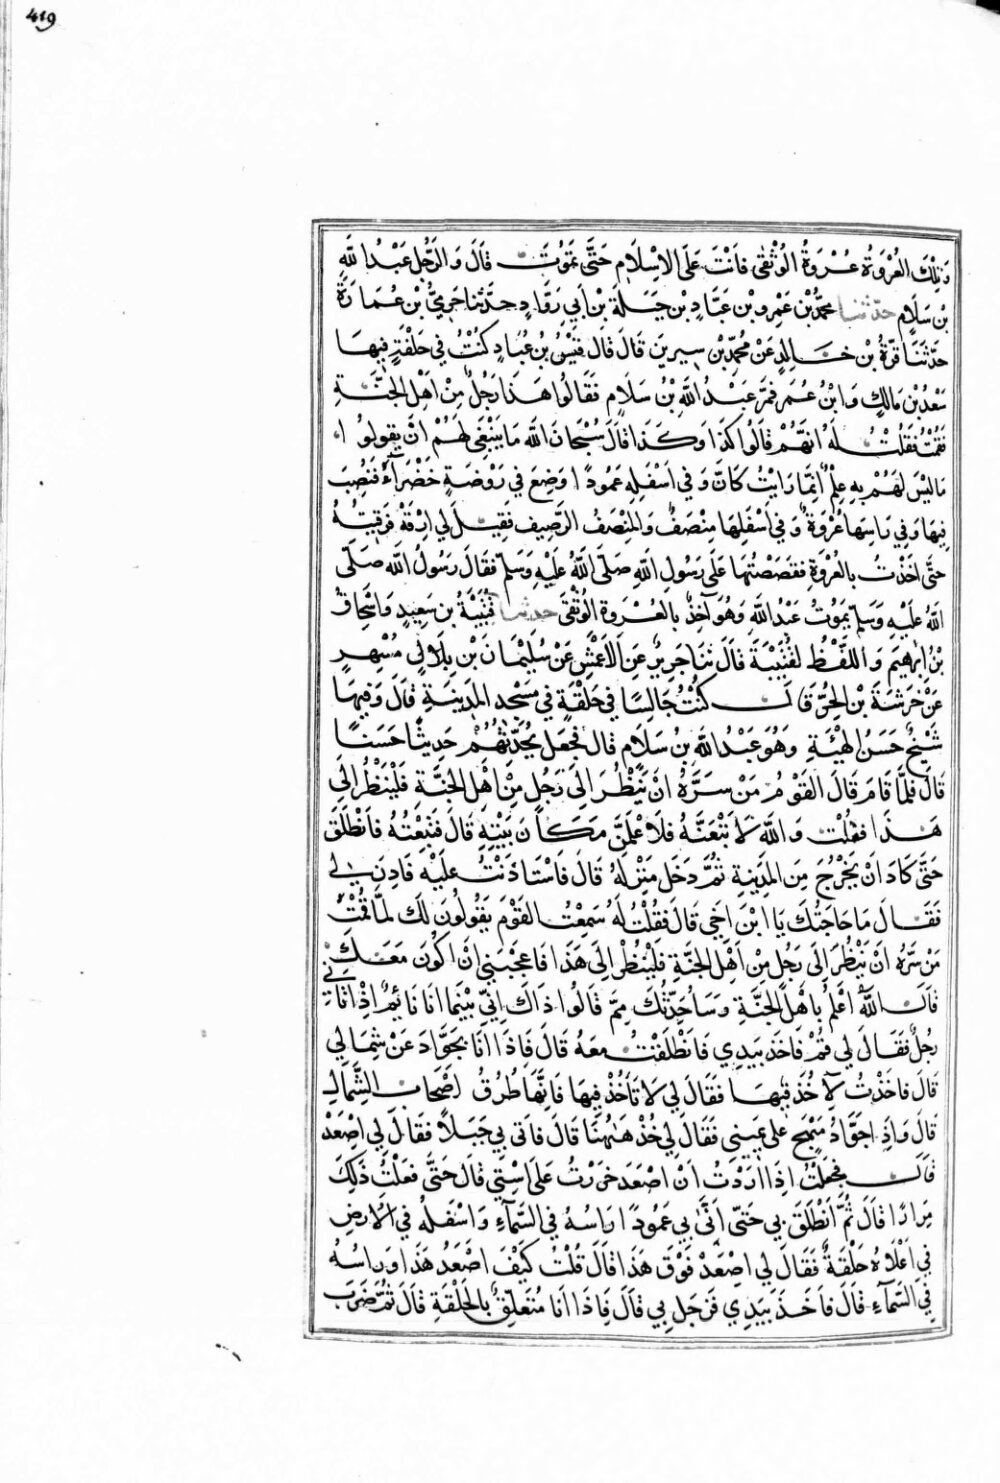 419
وَتِلْكَ العُرْوَةُ عُرْوَةُ الوُثْقَى فَانْتَ عَلَى الاِسْلَامِ حَتَّى تَمُوتَ قَالَ وَالرَّجُلُ عَبْدُ اللَّهِ
بْنُ سَلَامٍ حدّثنا محمّدُ بْنُ عَمْرِو بْنِ عَبَّادِ بْنِ جَبَلَةَ بْنِ اَبِي رَوَّادٍ حدَّثنا حَرَمِيُّ بْنُ عُمَارَةَ
حَدَّثَنَا قُرَّةُ بْنُ خَالِدٍ عَنْ مُحمّدِ بْنِ سِيرِينَ قَالَ قَالَ قَيْسُ بْنُ عُبَادٍ كُنْتُ فِي حَلْقَةٍ فِيهَا
سَعْدُ بْنُ مَالِكٍ وَابْنُ عُمَرَ فَمَرَّ عَبْدُ اللَّهِ بْنُ سَلَامٍ فَقَالُوا هَذَا رَجُلٌ مِنْ اَهْلِ الجَنَّةِ
فَقُمْتُ فَقُلْتُ لَهُ اِنَّهُمْ قَالُوا كَذَا وَكَذَا قَالَ سُبْحَانَ اللَّهِ مَا يَنْبَغِي لَهُمْ اَنْ يَقُولُوا
مَا لَيْسَ لَهُمْ بِهِ عِلْمٌ اِنَّمَا رَايْتُ كَانَّ وَفِي اَسْفَلِهِ عَمُودًا وُضِعَ فِي رَوْضَةٍ خَضْرَآءَ فَنُصِبَ
فِيهَا وَفِي رَاسِهَا عُرْوَةٌ وَفِي اَسْفَلِهَا مِنْصَفٌ وَالمِنْصَفُ الوَصِيفُ فَقِيلَ لِي ارْقَهْ فَرَقِيتُهُ
حَتَّى اَخَذْتُ بِالعُرْوَةِ فَقَصَصْتُهَا عَلَى رَسُولِ اللَّهِ صَلَّى اللَّهُ عَلَيْهِ وَسَلَّمَ فَقَالَ رَسُولُ اللَّهِ صَلَّى
اللَّهُ عَلَيْهِ وَسَلَّمَ يَمُوتُ عَبْدُ اللَّهِ وَهُوَ آخِذٌ بِالعُرْوَةِ الوُثْقَى حدثنا قُتَيْبَةُ بْنُ سَعِيدٍ وَاِسْحَاقُ
بْنُ اِبْرَهِيمَ وَاللَّفْظُ لِقُتَيْبَةَ قَالَ ثَنَا جَرِيرٌ عَنِ الاَعْمَشِ عَنْ سُلَيْمَانَ بْنِ مُسْهِرٍ
عَنْ خَرَشَةَ بْنِ الحُرِّ قَالَ كُنْتُ جَالِسًا فِي حَلْقَةٍ فِي مَسْجِدِ المَدِينَةِ قَالَ وَفِيهَا
شَيْخٌ حَسَنُ الهَيْئَةِ وَهُوَ عَبْدُ اللَّهِ بْنُ سَلَامٍ قَالَ فَجَعَلَ يُحَدِّثُهُمْ حَدِيثًا حَسَنًا
قَالَ فَلَمَّا قَامَ قَالَ القَوْمُ مَنْ سَرَّهُ اَنْ يَنْظُرَ اِلَى رَجُلٍ مِنْ اَهْلِ الجَنَّةِ فَلْيَنْظُرْ اِلَى
هَذَا فَقُلْتُ وَاللَّهِ لَاَتْبَعَنَّهُ فَلَاَعْلَمَنَّ مَكَانَ بَيْتِهِ قَالَ فَتَبِعْتُهُ فَانْطَلَقَ
حَتَّى كَادَ اَنْ يَخْرُجَ مِنَ المَدِينَةِ ثُمَّ دَخَلَ مَنْزِلَهُ قَالَ فَاسْتَاذَنْتُ عَلَيْهِ فَاذِنَ لِي
فَقَالَ مَا حَاجَتُكَ يَا ابْنَ اَخِي قَالَ فَقُلْتُ لَهُ سَمِعْتُ القَوْمَ يَقُولُونَ لَكَ لَمَّا قُمْتَ
مَنْ سَرَّهُ اَنْ يَنْظُرَ اِلَى رَجُلٍ مِنْ اَهْلِ الجَنَّةِ فَلْيَنْظُرْ اِلَى هَذَا فَاعْجَبَنِي اَنْ اَكُونَ مَعَكَ
قَالَ اللَّهُ اَعْلَمُ بِاَهْلِ الجَنَّةِ وَسَاُحَدِّثُكَ مِمَّ قَالُوا ذَاكَ اِنِّي بَيْنَمَا اَنَا نَائِمٌ اِذْ اَتَانِي
رَجُلٌ فَقَالَ لِي قُمْ فَاَخَذَ بِيَدِي فَانْطَلَقْتُ مَعَهُ قَالَ فَاِذَا اَنَا بِجَوَّادَ عَنْ شِمَالِي
قَالَ فَاَخَذْتُ لِآخُذَ فِيهَا فَقَالَ لِي لَا تَاخُذْ فِيهَا فَاِنَّهَا طُرُقُ اَصْحَابِ الشِّمَالِ
قَالَ وَاِذَا جَوَّادُ مَنْهَجٍ عَلَى يَمِينِي فَقَالَ لِي خُذْ هَهُنَا قَالَ فَاَتَى بِي جَبَلًا فَقَالَ لِي اصْعَدْ
قَالَ فَجَعَلْتُ اِذَا اَرَدْتُ اَنْ اَصْعَدَ خَرَرْتُ عَلَى اسْتِي قَالَ حَتَّى فَعَلْتُ ذَلِكَ
مِرَارًا قَالَ ثُمَّ انْطَلَقَ بِي حَتَّى اَتَى بِي عَمُودًا رَاسُهُ فِي السَّمَآءِ وَاَسْفَلُهُ فِي الاَرْضِ
فِي اَعْلَاهُ حَلْقَةٌ فَقَالَ لِي اصْعَدْ فَوْقَ هَذَا قَالَ قُلْتُ كَيْفَ اَصْعَدُ هَذَا وَرَاسُهُ
فِي السَّمَآءِ قَالَ فَاَخَذَ بِيَدِي فَزَجَلَ بِي قَالَ فَاِذَا اَنَا مُتَعَلِّقٌ بِالحَلْقَةِ قَالَ ثُمَّ ضَرَبَ